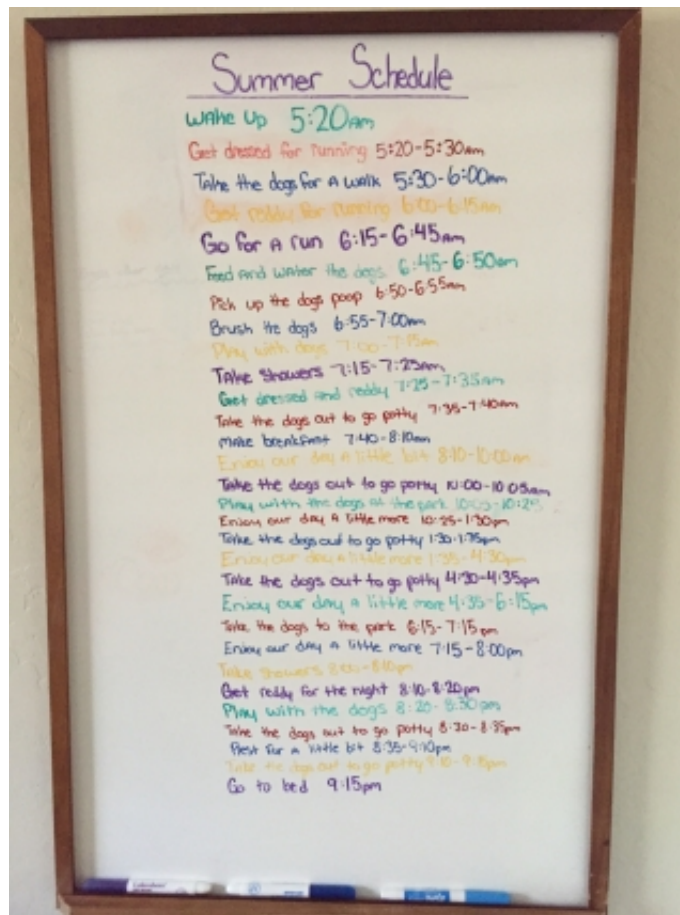 Summer Schedule
Wake up 5:20am
Get dressed for running 5:20-5:30am
Take the dogs for a walk 5:30-6:00am
Get reddy for running 6:00-6:15am
Go for a run 6:15-6:45am
Feed and water the dogs 6:45-6:50am
Pick up the dogs poop 6:50-6:55am
Brush the dogs 6:55-7:00am
Play with dogs 7:00-7:15am
Take showers 7:15-7:25am
Get dressed and reddy 7:25-7:35am
Take the dogs out to go potty 7:35-7:40am
Make breakfast 7:40-8:10am
Enjoy our day a little bit 8:10-10:00am
Take the dogs out to go potty 10:00-10:05am
Play with the dogs at the park 10:05-10:25
Enjoy our day a little more 10:25-1:30pm
Take the dogs out to go potty 1:30-1:35pm
Enjoy our day a little more 1:35-4:30pm
Take the dogs out to go potty 4:30-4:35pm
Enjoy our day a little more 4:35-6:15pm
Take the dogs to the park 6:15-7:15pm
Enjoy our day a little more 7:15-8:00pm
Take showers 8:00-8:10pm
Get reddy for the night 8:10-8:20pm
Play with the dogs 8:20-8:30pm
Take the dogs out to go potty 8:30-8:35pm
Rest for a little bit 8:35-9:10pm
Take the dogs out to go potty 9:10-9:15pm
Go to bed 9:15pm